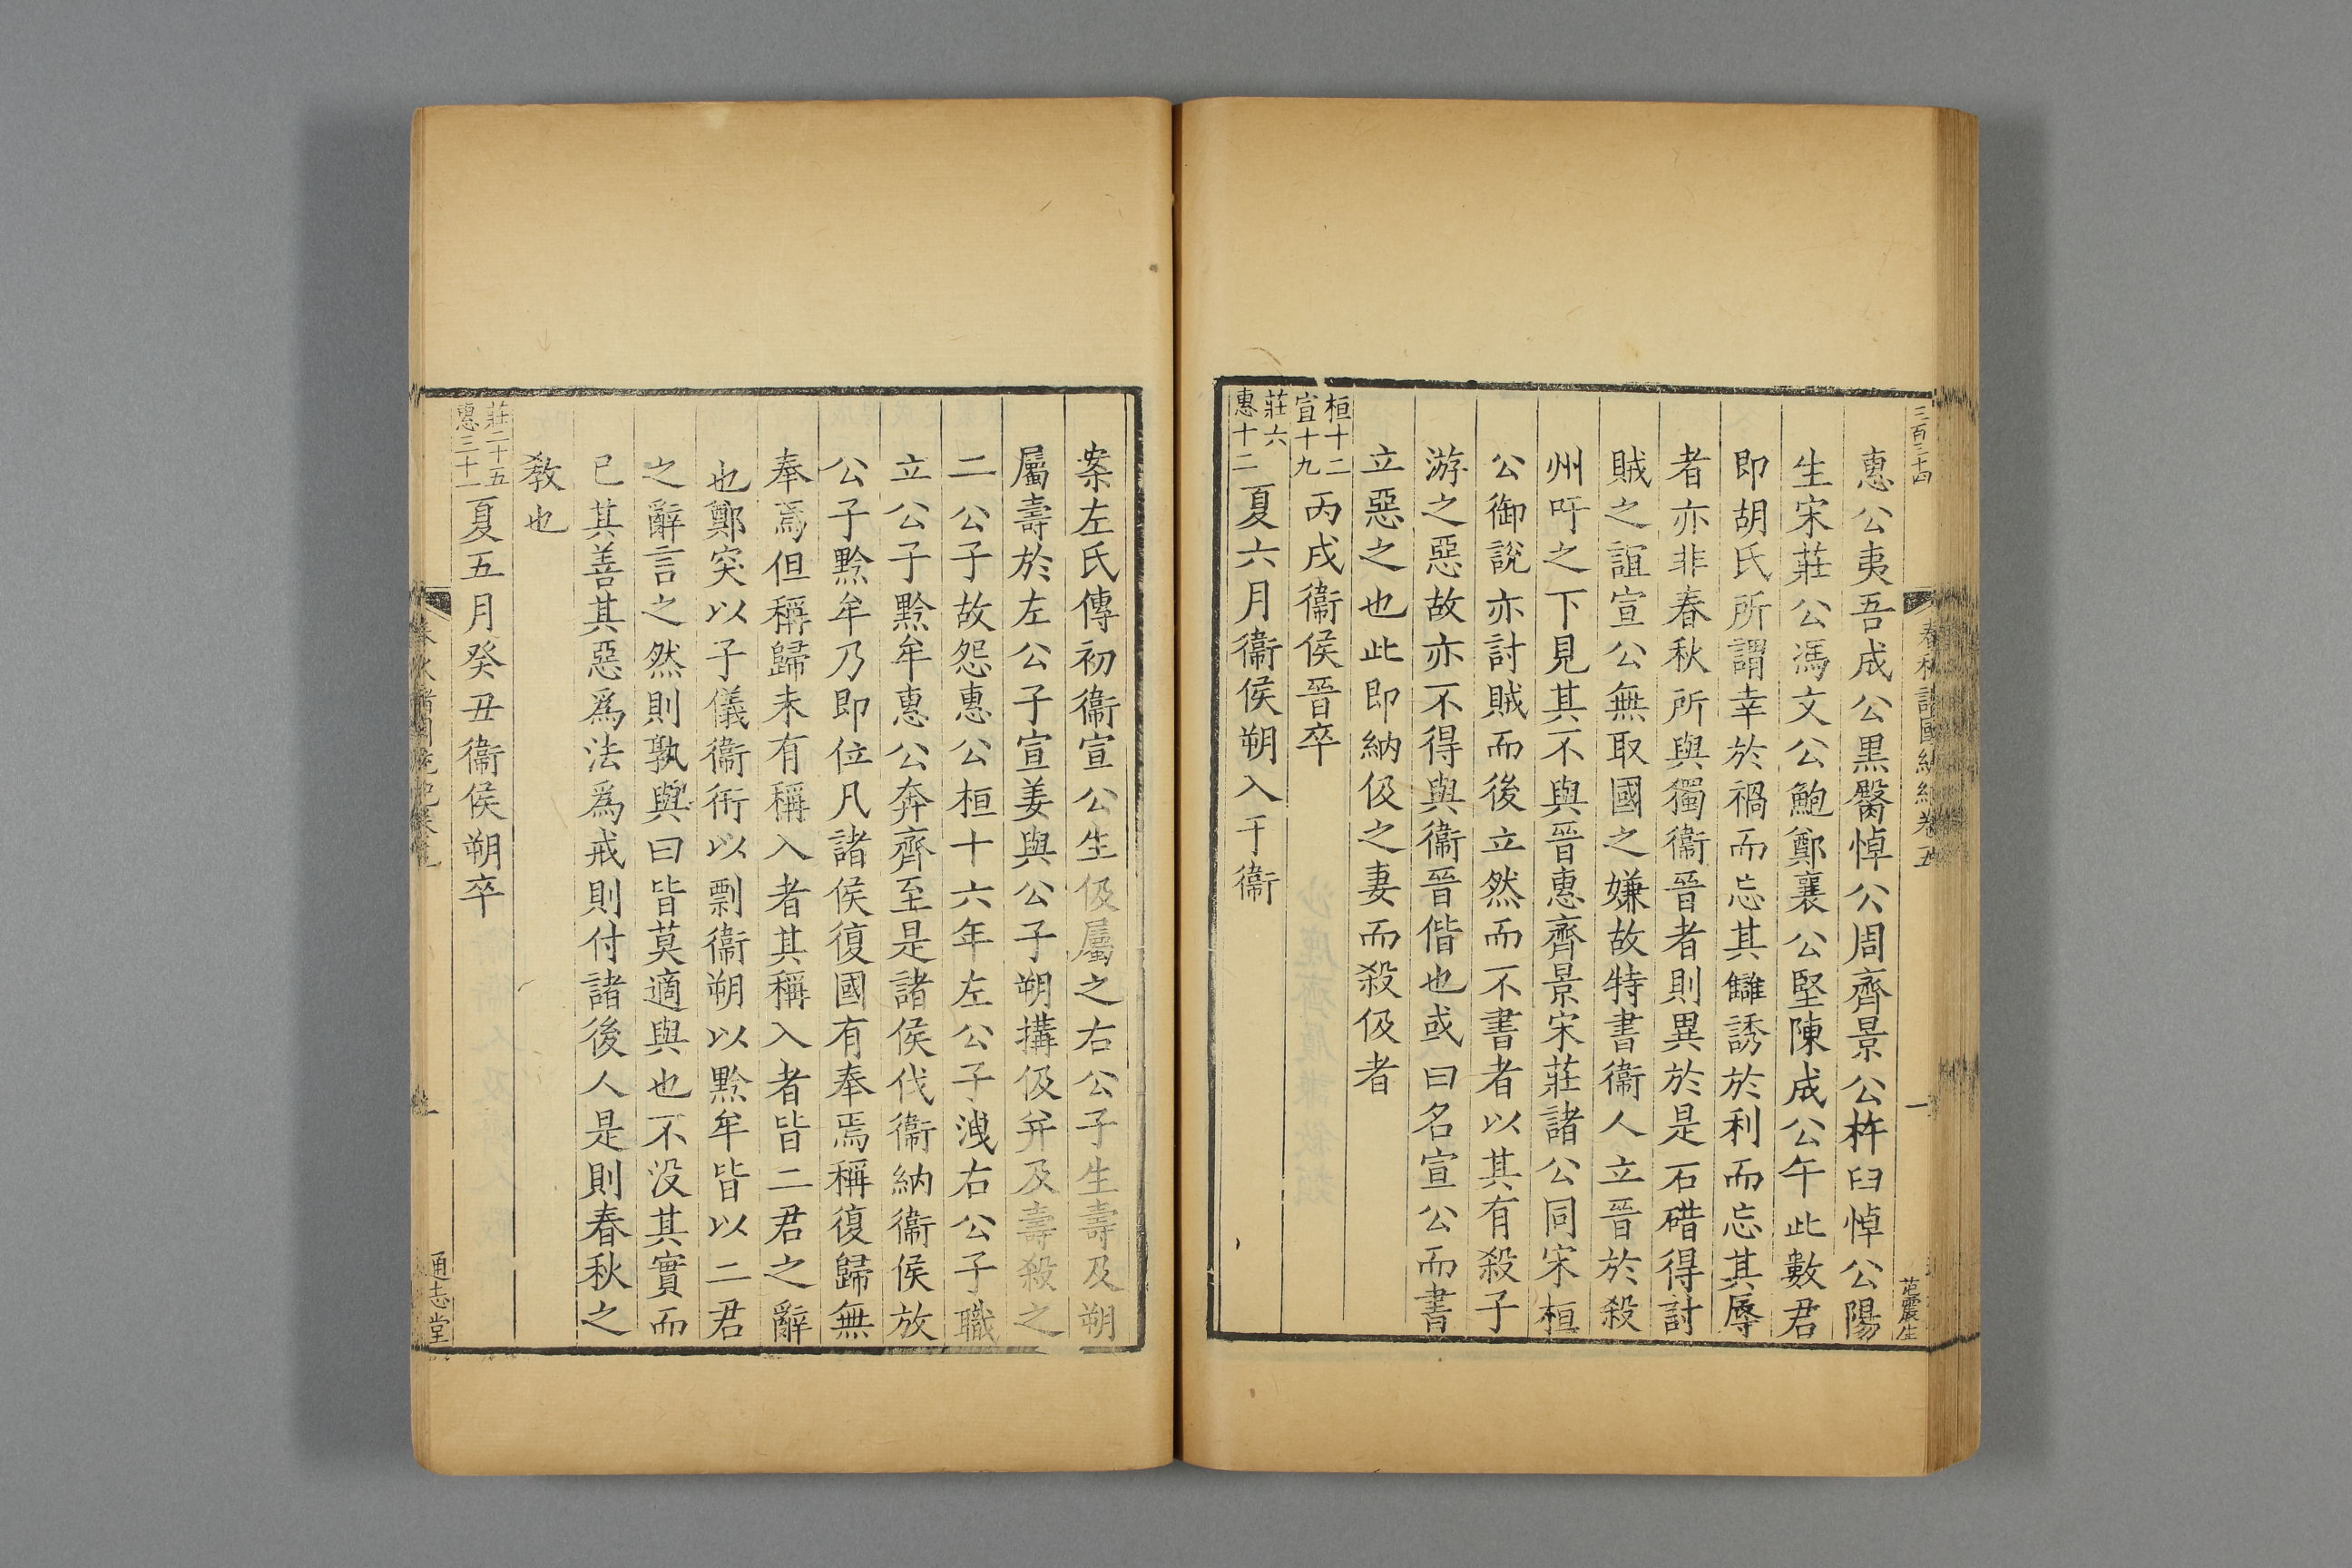 三百三十四
春秋諸國統紀卷五
一
范震生
惠公夷吾成公黑臀悼公周齊景公杵臼悼公陽
生宋莊公馮文公鮑鄭襄公堅陳成公午此數君
即胡氏所謂幸於禍而忘其讎誘於利而忘其辱
者亦非春秋所與獨衞晉者則異於是石碏得討
賊之誼宣公無取國之嫌故特書衞人立晉於殺
州吁之下見其不與晉惠齊景宋莊諸公同宋桓
公御說亦討賊而後立然而不書者以其有殺子
游之惡故亦不得與衞晉偕也或曰名宣公而書
立惡之也此即納伋之妻而殺伋者
桓十二
宣十九
丙戌衞侯晉卒
莊六
惠十二
夏六月衞侯朔入于衞
案左氏傳初衞宣公生伋屬之右公子生壽及朔
屬壽於左公子宣姜與公子朔搆伋并及壽殺之
二公子故怨惠公桓十六年左公子洩右公子職
立公子黔牟惠公奔齊至是諸侯伐衞納衞侯放
公子黔牟乃即位凡諸侯復國有奉焉稱復歸無
奉焉但稱歸未有稱入者其稱入者皆二君之辭
也鄭突以子儀衞衎以剽衞朔以黔牟皆以二君
之辭言之然則孰與曰皆莫適與也不没其實而
已其善其惡爲法爲戒則付諸後人是則春秋之
敎也
莊二十五
惠三十一
夏五月癸丑衞侯朔卒
春秋諸國統紀卷五
通志堂